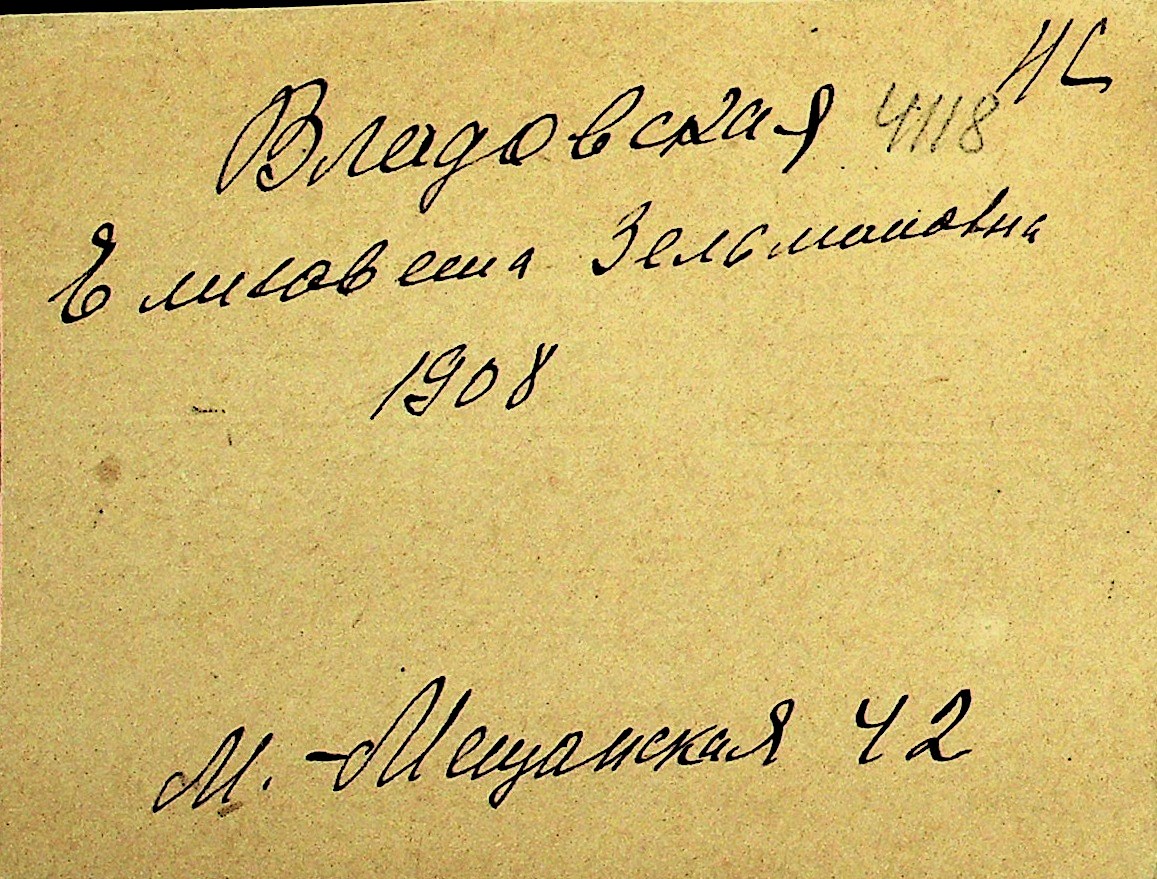 НС
Владовская 4118
Елизавета Зельмановна
1908
М.-Мещанская 42